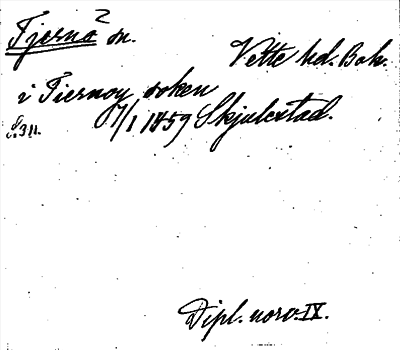 Tjernö sn.
Vette hd. Boh.
i Tiernoy soken
S. 311. 7/1 1459 Skjulestad.
Dipl. norv. IX.